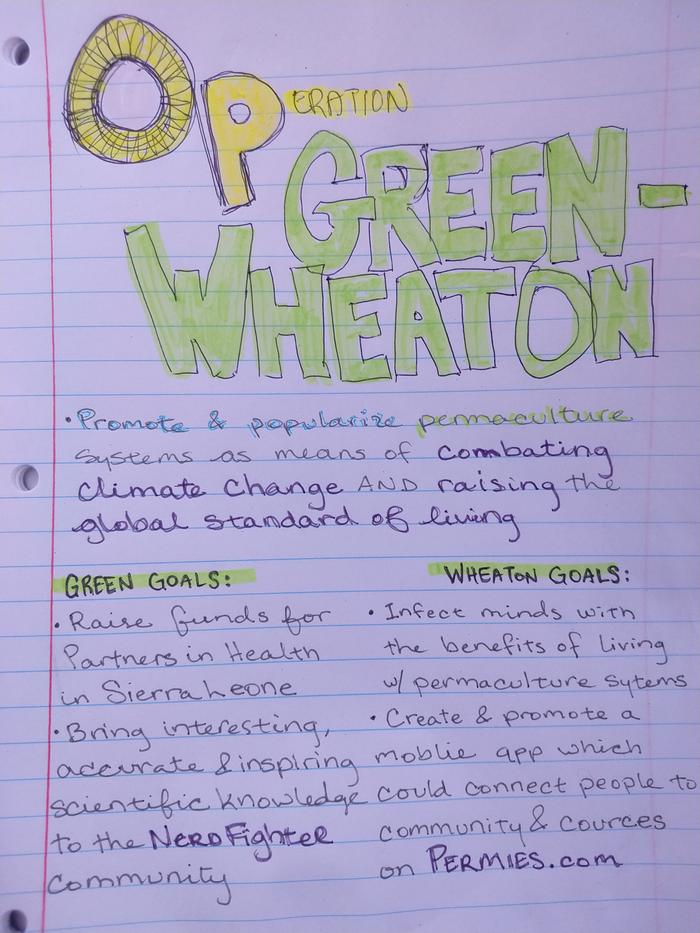 OPERATION
GREEN-
WHEATON
• Promote & popularize permaculture
systems as means of combating
climate change AND raising the
global standard of living
GREEN GOALS:
• Raise funds for
Partners in Health
in Sierra Leone
• Bring interesting,
accurate & inspiring
scientific knowledge
to the NERDFighter
community
WHEATON GOALS:
• Infect minds with
the benefits of living
w/ permaculture sytems
• Create & promote a
moblie app which
could connect people to
community & cources
on PERMIES.com